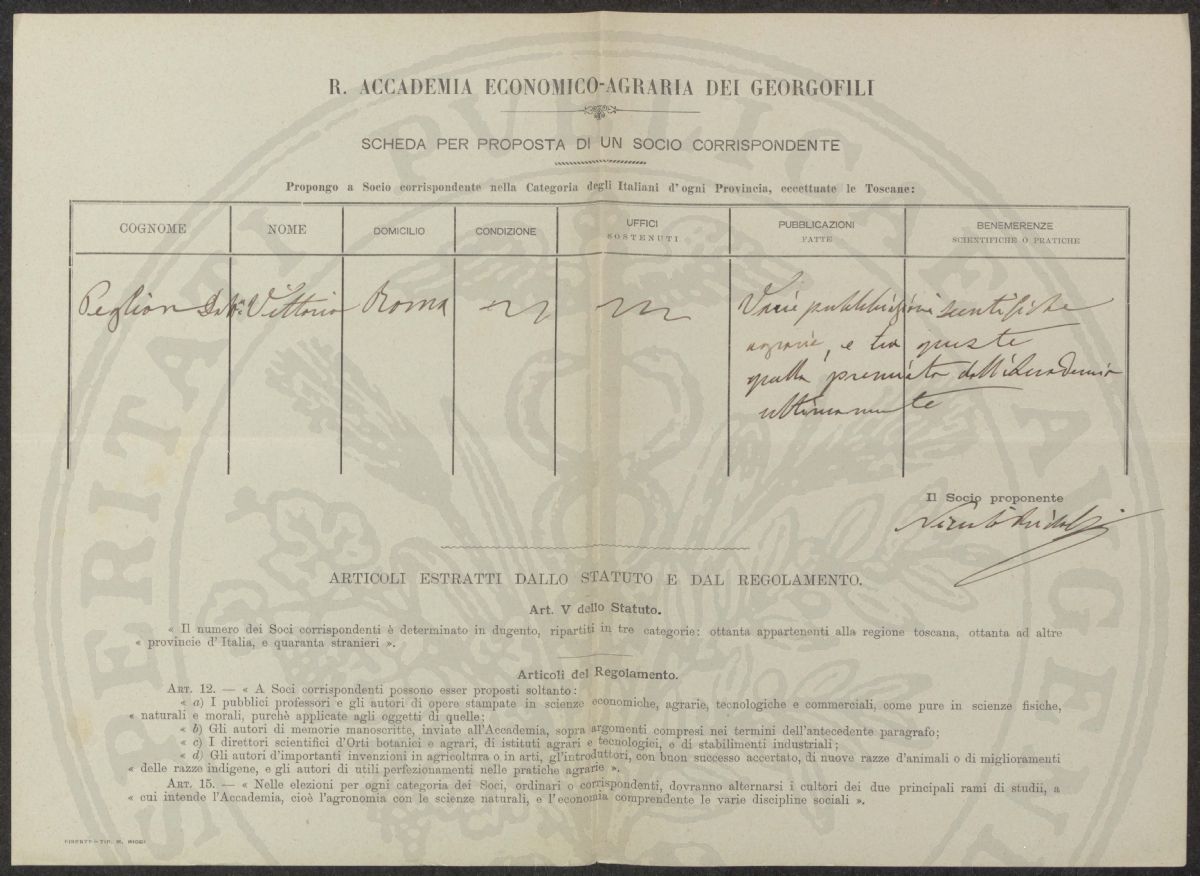 R. ACCADEMIA ECONOMICO-AGRARIA DEI GEORGOFILI
SCHEDA PER PROPOSTA DI UN SOCIO CORRISPONDENTE
Propongo a Socio corrispondente nella Categoria degli Italiani d'ogni Provincia, eccettuate le Toscane:
COGNOME NOME DOMICILIO CONDIZIONE UFFICI SOSTENUTI PUBBLICAZIONI FATTE BENEMERENZE SCIENTIFICHE O PRATICHE
Peglion Vittorio Roma Varie pubblicazioni scientifiche
agrarie, e tra queste
quella premiata dall'Accademia
ultimamente
Il Socio proponente
Niccolò Ridolfi
ARTICOLI ESTRATTI DALLO STATUTO E DAL REGOLAMENTO.
Art. V dello Statuto.
« Il numero dei Soci corrispondenti è determinato in dugento, ripartiti in tre categorie: ottanta appartenenti alla regione toscana, ottanta ad altre
« provincie d'Italia, e quaranta stranieri ».
Articoli del Regolamento.
ART. 12. — « A Soci corrispondenti possono esser proposti soltanto:
« a) I pubblici professori e gli autori di opere stampate in scienze economiche, agrarie, tecnologiche e commerciali, come pure in scienze fisiche,
« naturali e morali, purchè applicate agli oggetti di quelle;
« b) Gli autori di memorie manoscritte, inviate all'Accademia, sopra argomenti compresi nei termini dell'antecedente paragrafo;
« c) I direttori scientifici d'Orti botanici e agrari, di istituti agrari e tecnologici, e di stabilimenti industriali;
« d) Gli autori d'importanti invenzioni in agricoltura o in arti, gl'introduttori, con buon successo accertato, di nuove razze d'animali o di miglioramenti
« delle razze indigene, e gli autori di utili perfezionamenti nelle pratiche agrarie ».
ART. 15. — « Nelle elezioni per ogni categoria dei Soci, ordinari o corrispondenti, dovranno alternarsi i cultori dei due principali rami di studii, a
« cui intende l'Accademia, cioè l'agronomia con le scienze naturali, e l'economia comprendente le varie discipline sociali ».
FIRENZE — TIP. M. RICCI
PROSPERITATI PUBLICAE AUGENDAE